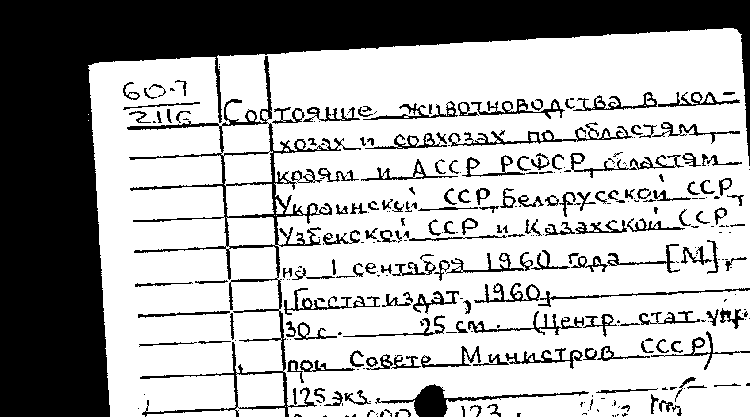 60-7
2116 Состояние животноводства в кол-
хозах и совхозах по областям,
краям и АССР РСФСР, областям
Украинской ССР, Белорусской ССР,
Узбекской ССР и Казахской ССР
на 1 сентября 1960 года [М],
Госстатиздат, 1960,
30 с. 25 см. (Центр. стат. упр
при Совете Министров СССР)
125 экз.
123.